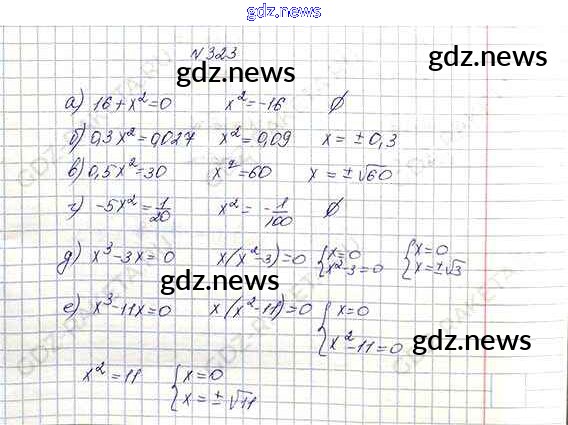 gdz.news
N 323
gdz.news
gdz.news
а) 16+x²=0 x²=-16 ∅
б) 0,3x²=0,027 x²=0,09 x=±0,3
в) 0,5x²=30 x²=60 x=±√60
г) -5x²=1/20 x²=-1/100 ∅
д) x³-3x=0 x(x²-3)=0 {x=0 x²-3=0 {x=0 x=±√3
gdz.news
е) x³-11x=0 x(x²-11)=0 {x=0 x²-11=0
gdz.news
x²=11 {x=0 x=±√11